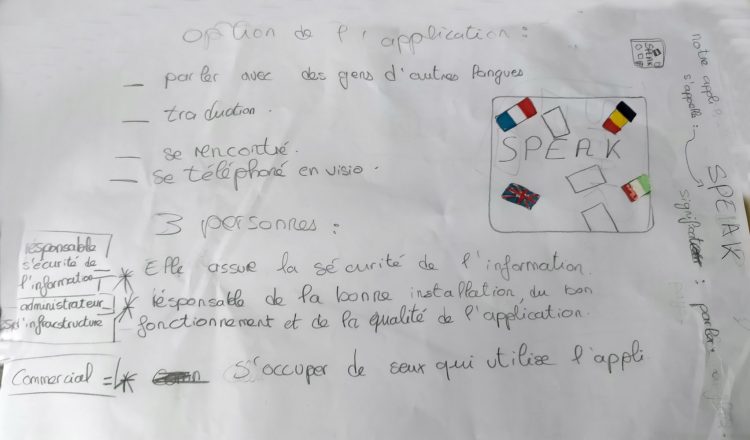 option de l'application :
— parler avec des gens d'autres langues
— traduction.
— se rencontré.
— se téléphoné en visio.
SPEAK
3 personnes :
résponsable
s'écurité de
l'information
* Elle assure la sécurité de l'information.
administrateur
* résponsable de la bonne installation, du bon
fonctionnement et de la qualité de l'application.
Commercial = * s'occuper de ceux qui utilise l'appli
SPEAK
notre appli
s'appelle :
SPEAK
signification : parler